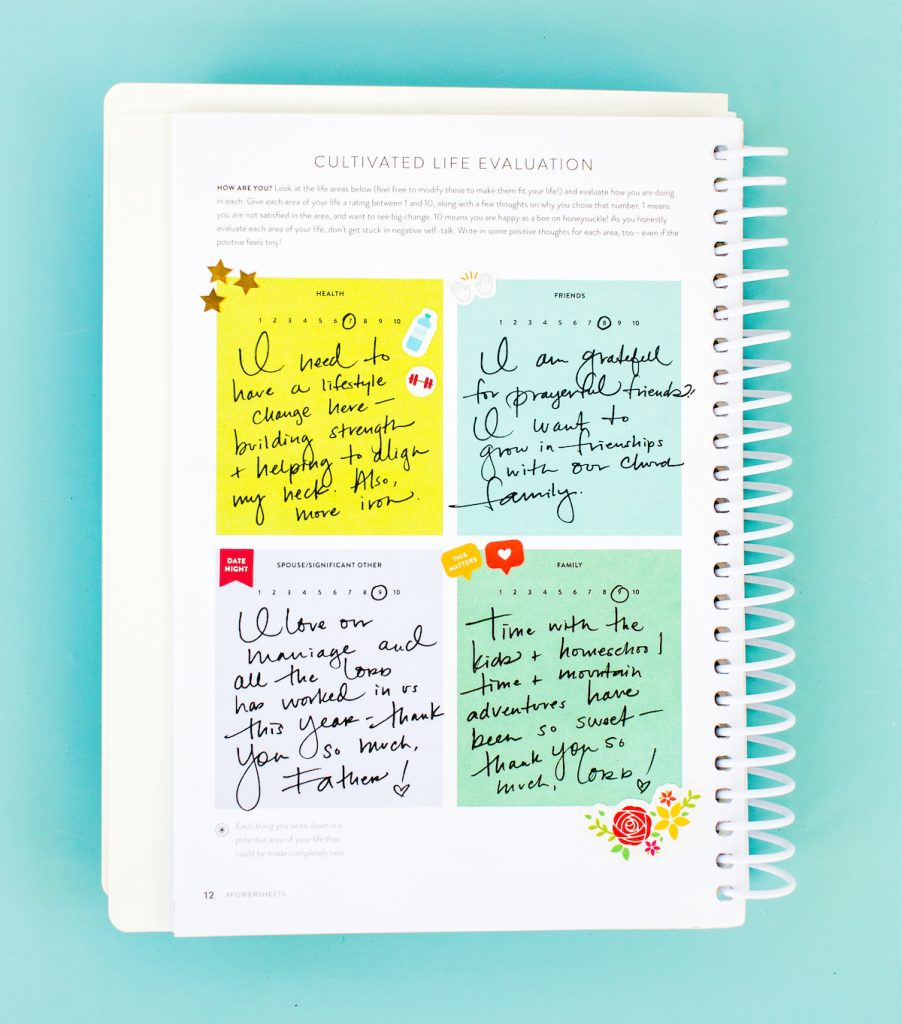 CULTIVATED LIFE EVALUATION
HOW ARE YOU? Look at the life areas below (feel free to modify these to make them fit your life!) and evaluate how you are doing
in each. Give each area of your life a rating between 1 and 10, along with a few thoughts on why you chose that number. 1 means
you are not satisfied in the area, and want to see big change. 10 means you are happy as a bee on honeysuckle! As you honestly
evaluate each area of your life, don't get stuck in negative self-talk. Write in some positive thoughts for each area, too—even if the
positive feels tiny!
HEALTH
1 2 3 4 5 6 7 8 9 10
I need to
have a lifestyle
change here —
building strength
+ helping to align
my neck. Also,
more iron.
FRIENDS
1 2 3 4 5 6 7 8 9 10
I am grateful
for prayerful friends!
I want to
grow in friendships
with our church
family.
DATE
NIGHT
SPOUSE/SIGNIFICANT OTHER
1 2 3 4 5 6 7 8 9 10
I love our
marriage and
all the LORD
has worked in us
this year - thank
you so much,
Father!
THIS
MATTERS
FAMILY
1 2 3 4 5 6 7 8 9 10
Time with the
kids + homeschool
time + mountain
adventures have
been so sweet —
thank you so
much, LORD!
Each thing you write down is a
potential area of your life that
could be made completely new.
12 #POWERSHEETS